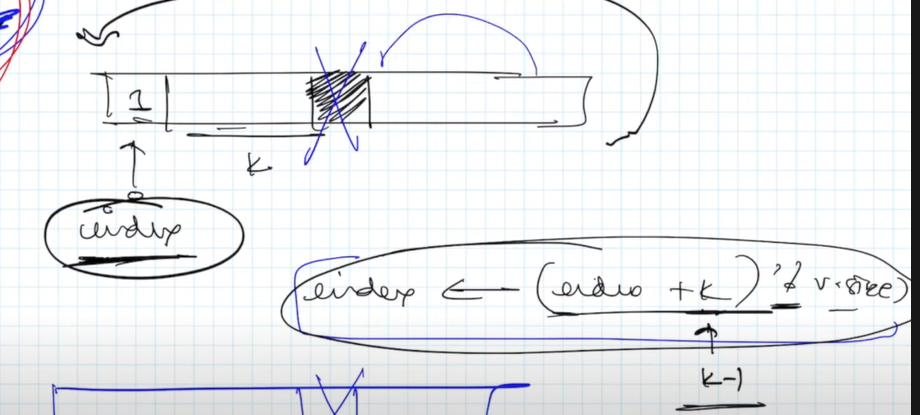 1
k
index
index ← (index + k) % v.size)
k-1